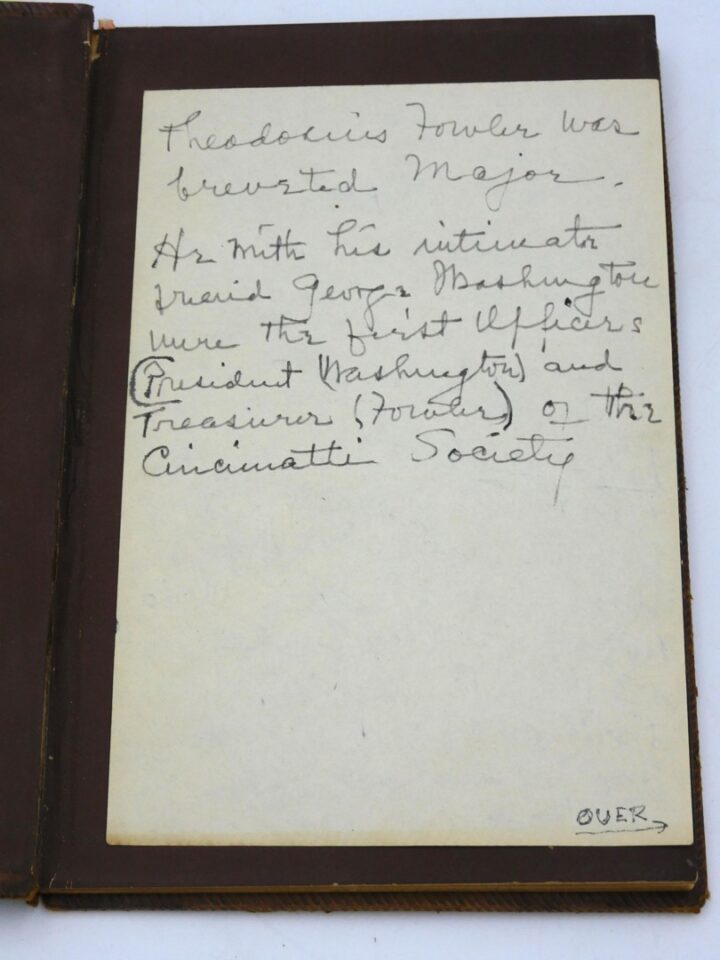 Theodosius Fowler was
breveted Major.
He with his intimate
friend George Washington
were the first Officers
(President (Washington) and
Treasurer (Fowler) of the
Cincinnatti Society
OVER